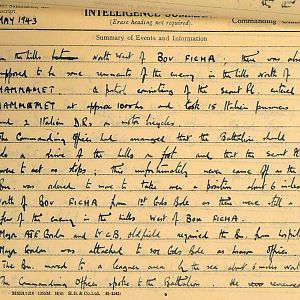 INTELLIGENCE SUMMARY
(Erase heading not required).
MAY 1943
Commanding
Summary of Events and Information
in the hills North West of BOU FICHA, there was also
supposed to be some remnants of the enemy in the hills North of
HAMMAMET. a patrol consisting of the scout Pl. entered
HAMMAMET at approx 1000 hrs and took 15 Italian prisoners
and 2 Italian D.Rs. on motor bicycles.
The Commanding Officer had arranged that the Battalion should
do a drive of the hills on foot and that the scout Pl.
were to act as stops; this unfortunately never came off as the
Bn. was ordered to move to take over a position about 6 miles
North of BOU FICHA from 1st Gds Bde as there were still a
few of the enemy in the hills West of BOU FICHA.
Major and Lt C.B. Oldfield rejoined the Bn. from
Major was attached to 201 Gds Bde as liaison officer
The Bn. moved to a leaguer area by the sea about 5 miles
The Commanding Officer spoke to the Battalion He